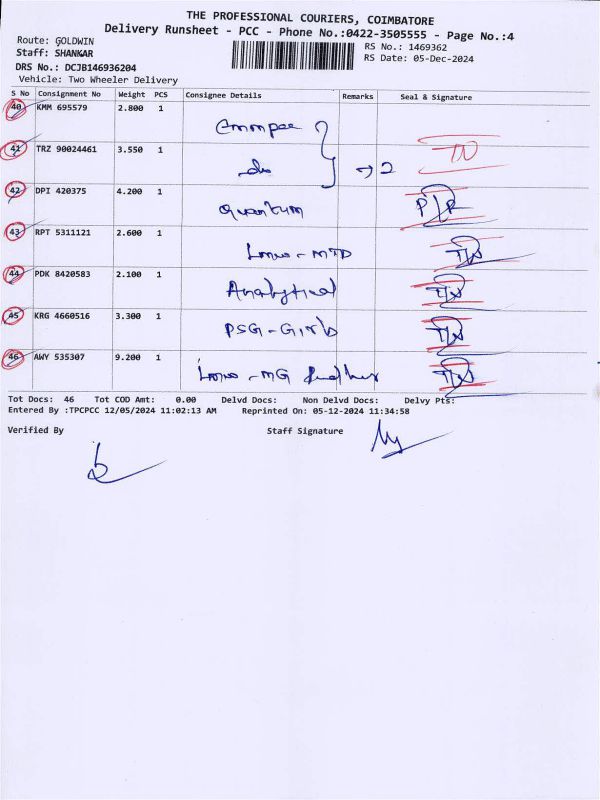 THE PROFESSIONAL COURIERS, COIMBATORE
Delivery Runsheet - PCC - Phone No.:0422-3505555 - Page No.:4
Route: GOLDWIN
RS No.: 1469362
Staff: SHANKAR
RS Date: 05-Dec-2024
DRS No.: DCJB146936204
Vehicle: Two Wheeler Delivery
S No Consignment No Weight PCS Consignee Details Remarks Seal & Signature
40 KMM 695579 2.800 1
41 TRZ 90024461 3.550 1 do → 2
42 DPI 420375 4.200 1 Quantum
43 RPT 5311121 2.600 1 MTD
44 PDK 8420583 2.100 1 Analytical
45 KRG 4660516 3.300 1 PSG - Girls
46 AWY 535307 9.200 1 - MG
Tot Docs: 46 Tot COD Amt: 0.00 Delvd Docs: Non Delvd Docs: Delvy Pts:
Entered By :TPCPCC 12/05/2024 11:02:13 AM Reprinted On: 05-12-2024 11:34:58
Verified By Staff Signature